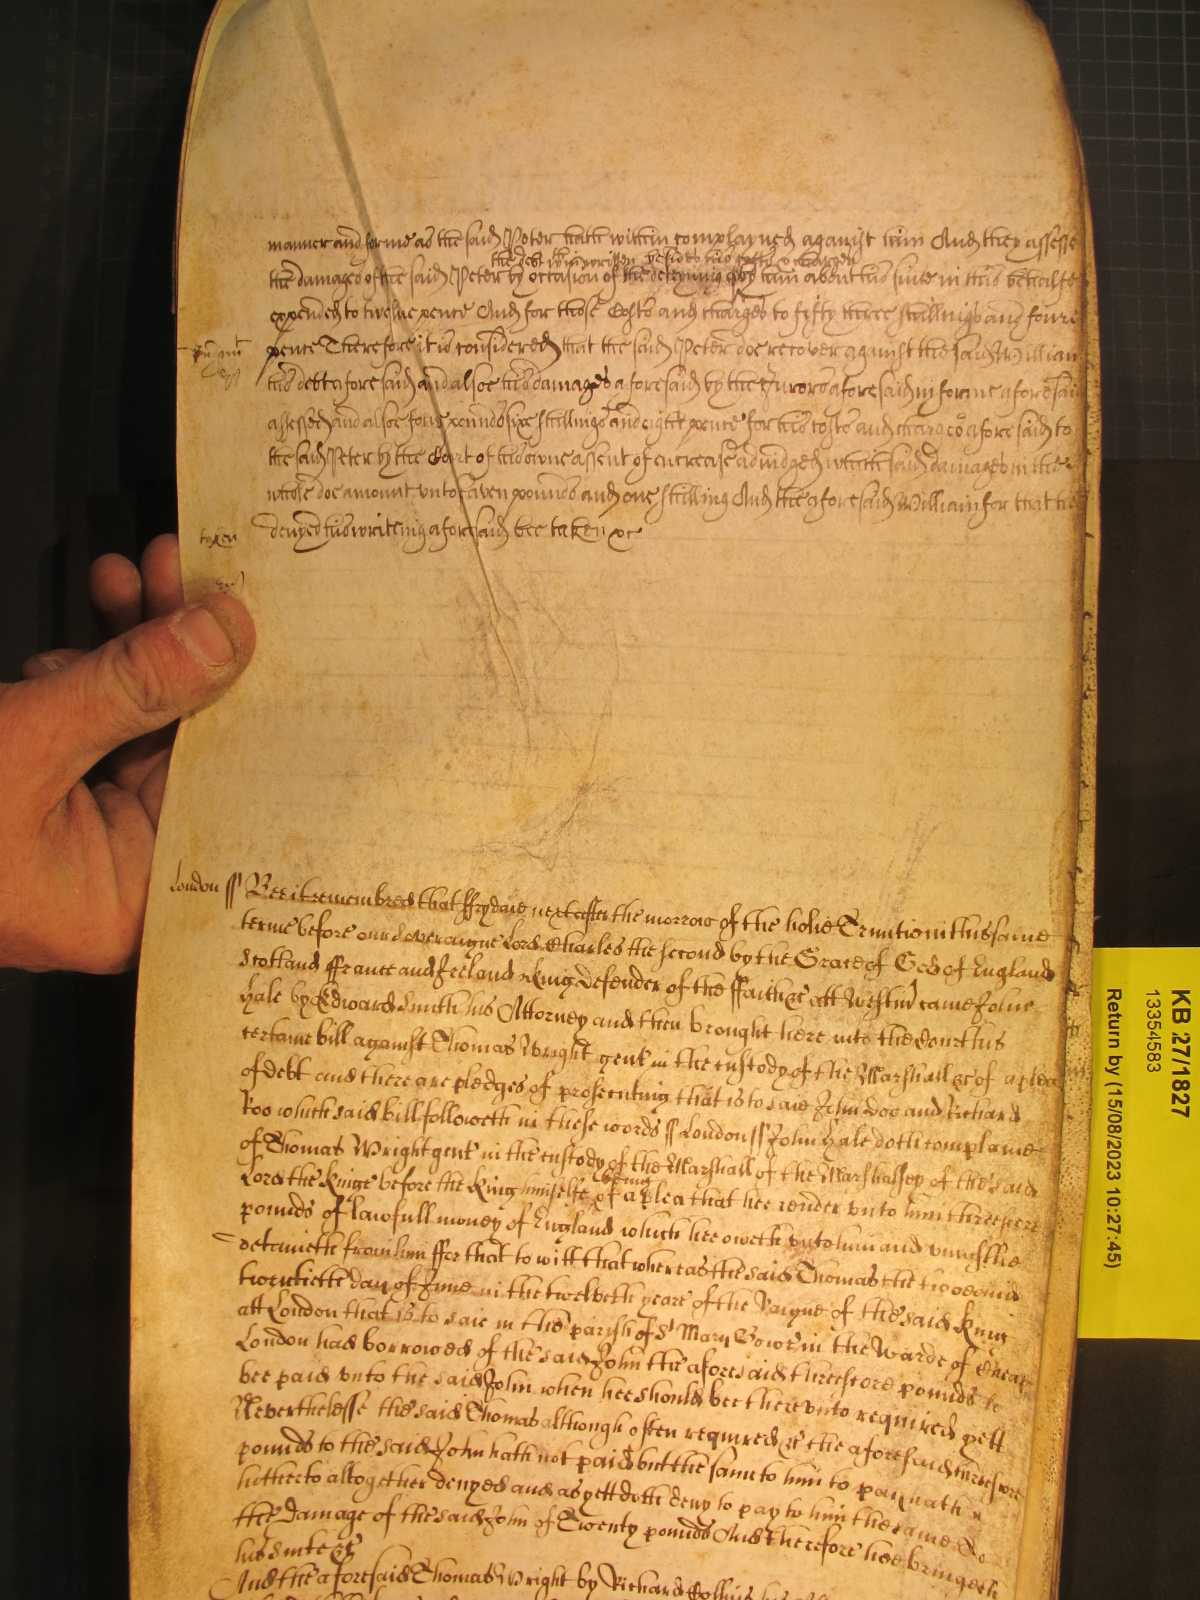 manner and forme as the said Peter hath within complayned against him And they assesse
the debt within written besides his costs & charges
the damages of the said Peter by occasion of the deteyning of by him about his suite in this behalfe
expended to twelve pence And for those Costs and charges to fifty three shillings and foure
pence Therefore it is considered that the said Peter doe recover against the said William
his debt aforesaid and alsoe his damages aforesaid by the Jurors aforesaid in forme aforesaid
assessed and alsoe foure pounds six shillings and eight pence for his costs and charges aforesaid to
the said Peter by the Court of his owne assent of encrease adiudged which said damages in the
whole doe amount unto seaven pounds and one shilling And the aforesaid William for that he
taken
denyed his writeing aforesaid bee taken &c
London ss Bee it remembred that ffrydaie next after the morrow of the holie Trinitie in this same
terme before our Soveraigne Lord Charles the second by the Grace of God of England
Scotland ffrance and Ireland King Defender of the ffaith &c att Westm came John
Hale by Edward Smith his Attorney and then brought here into the Court his
certaine bill against Thomas Wright gent in the custody of the Marshall &c of a plea
of debt and there are pledges of prosecuting that is to saie John Doo and Richard
Roo which said bill followeth in these words ss London ss John Hale doth complaine
of Thomas Wright gent in the custody of the Marshall of the Marshalsey of the said
Lord the Kinge before the King himselfe being of a plea that hee render unto him threescore
pounds of lawfull money of England which hee oweth unto him and uniustlie
detaineth from him ffor that to witt that whereas the said Thomas the two and
twentieth day of June in the twelveth yeare of the Raigne of the said King
att London that is to saie in the parish of St Mary Bowe in the Warde of Cheap
London had borrowed of the said John the aforesaid threescore pounds to
bee paid unto the said John when hee should bee thereunto required yett
Neverthelesse the said Thomas although often required &c the aforesaid threescore
pounds to the said John hath not paid but the same to him to pay hath
hitherto altogether denyed and as yett doth deny to pay to him the same To
the Damage of the said John of Twenty pounds And therefore hee bringeth
his suite &c
And the aforesaid Thomas Wright by Richard Collins his
KB 27/1827
13354583
Return by (15/08/2023 10:27:45)